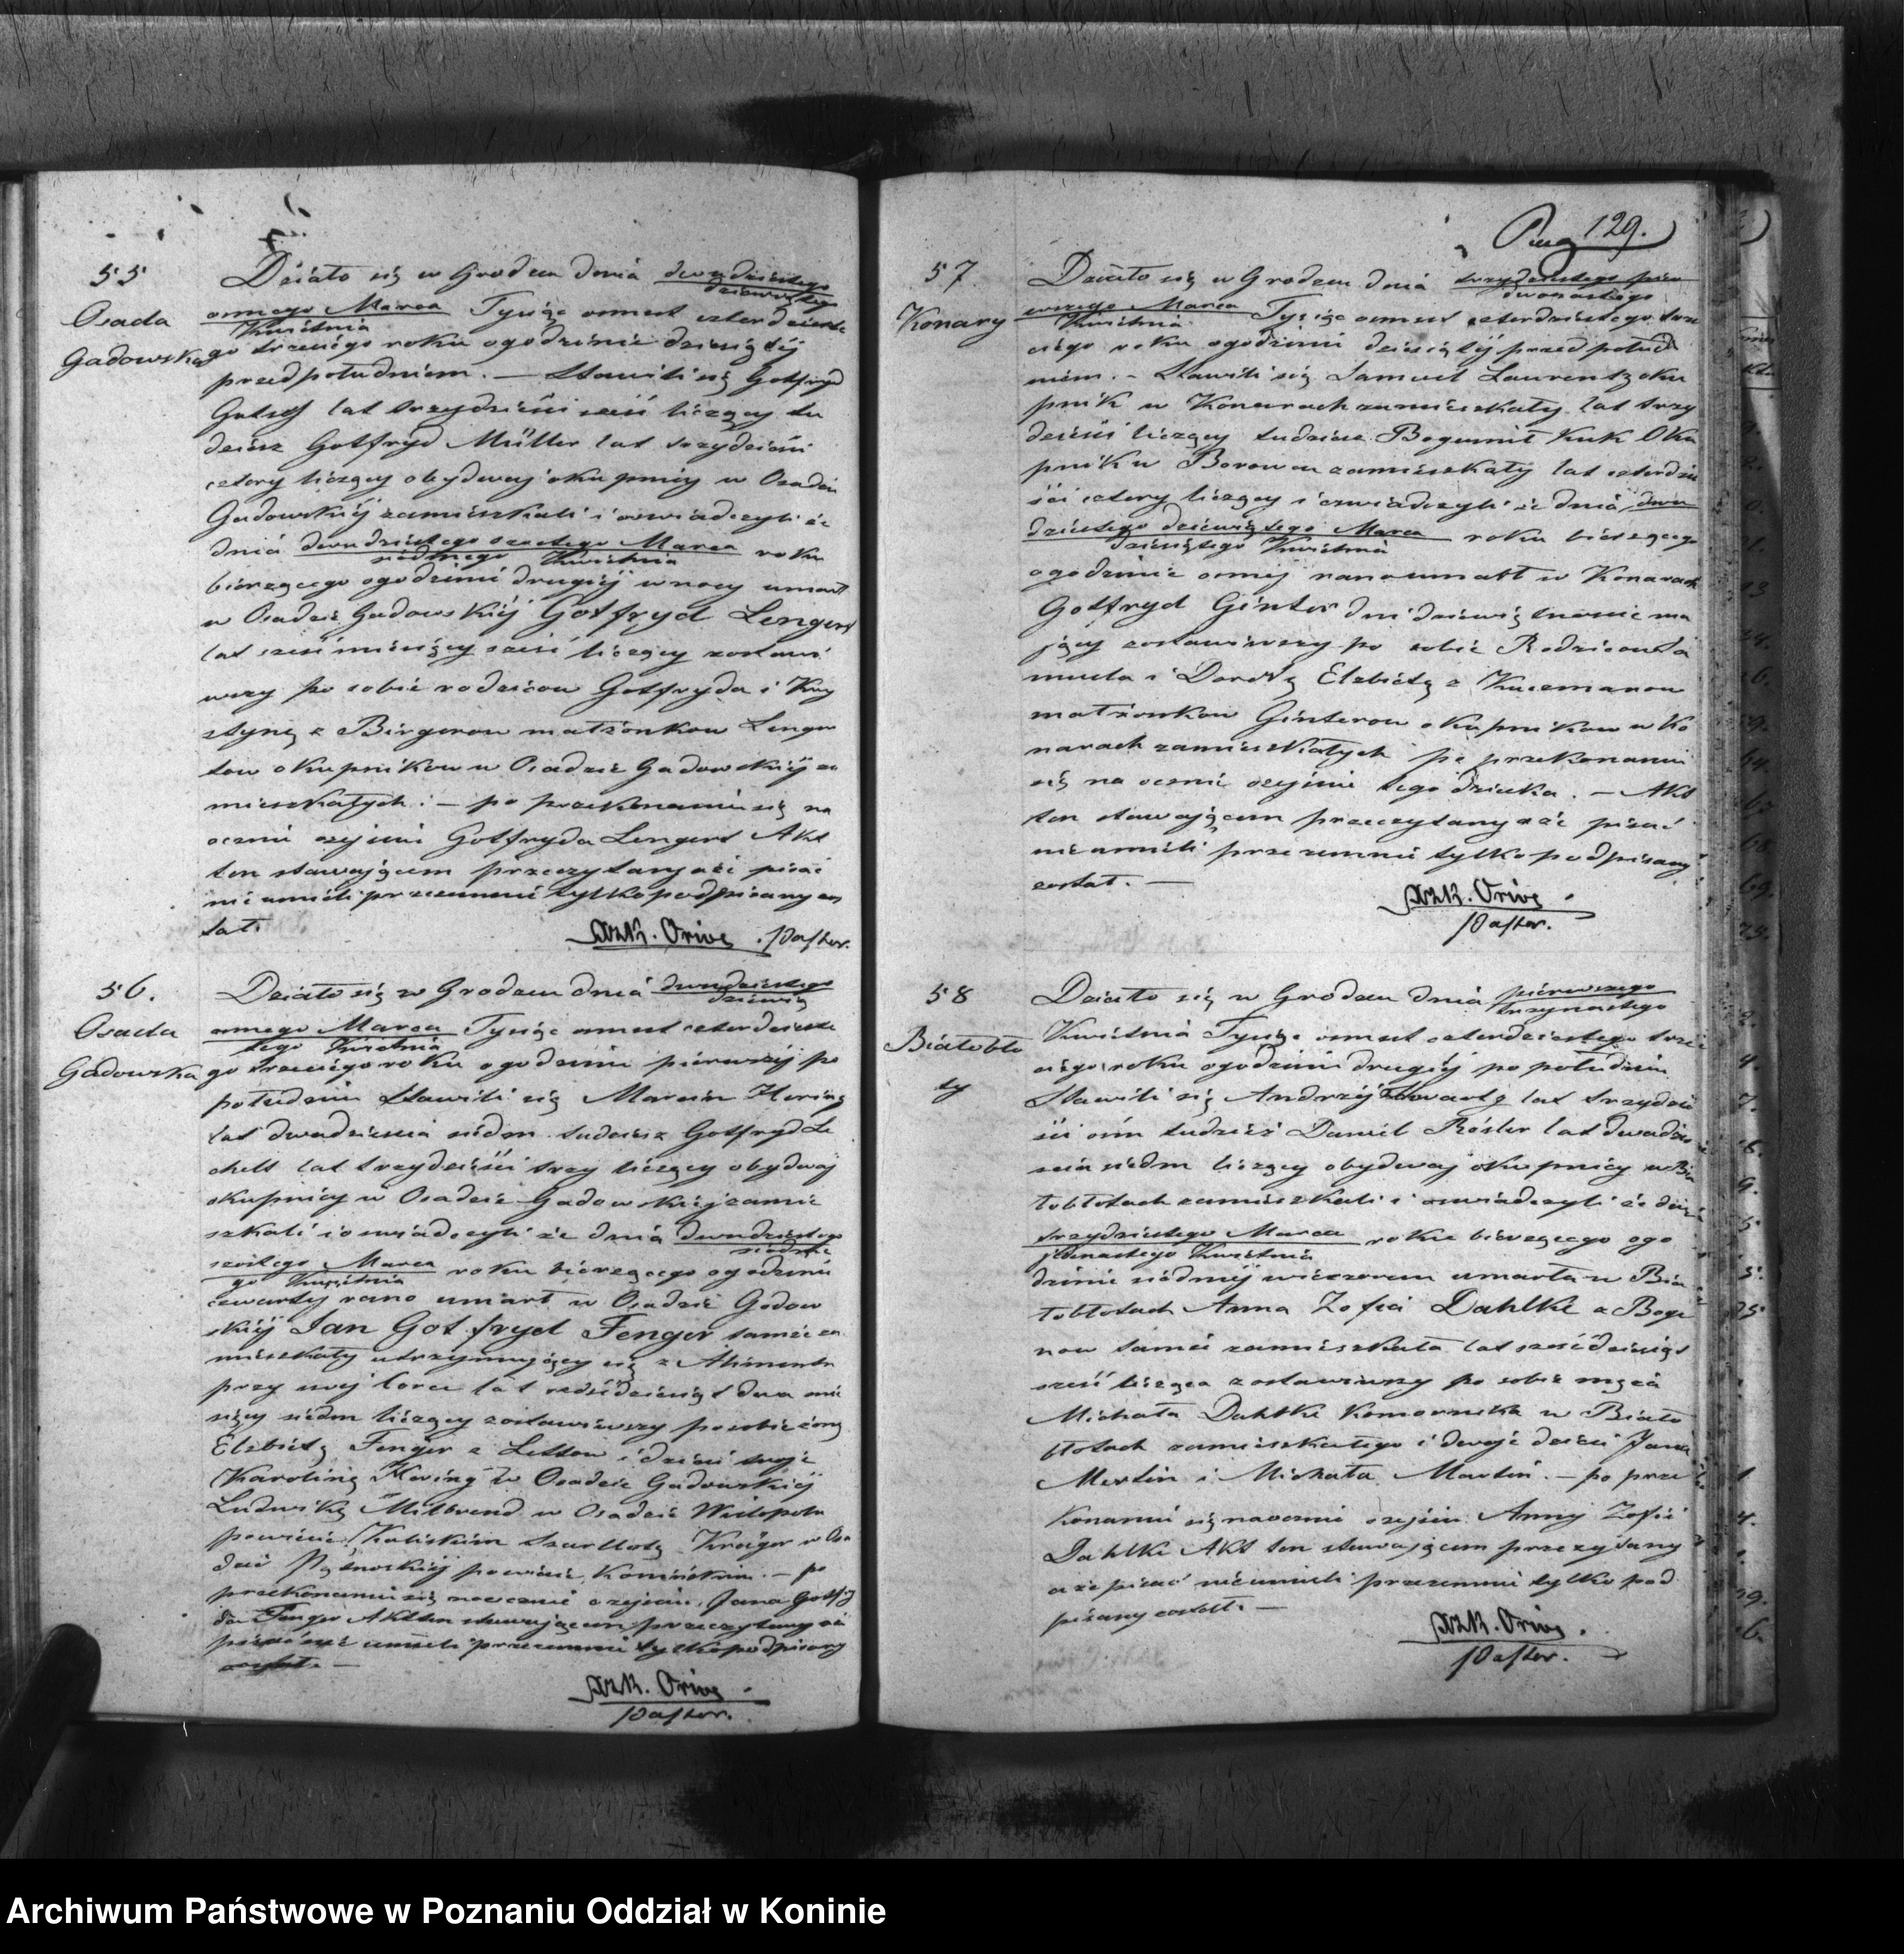 55
Osada
Gadowska
Działo się w Grodzcu dnia dwudziestego
dziewiątego
osmego Marca Tysiąc osmset czterdzieste
Kwietnia
go trzeciego roku ogodzinie dziesiątéj
przed południem. — Stawili się Gotfryd
lat trzydzieści sześć liczący tu
dzież Gotfryd Müller lat trzydzieści
cztery liczący obydwaj okupnicy w Osadzie
Gadowskiéj zamieszkali i oswiadczyli że
dnia dwudziestego szostego Marca roku
siodmego Kwietnia
bieżącego ogodzinie drugiéj w nocy umarł
w Osadzie Gadowskiéj Gotfryd Lengert
lat sześć miesięcy sześć liczący zostawi
wszy po sobie rodziców Gotfryda i Kry
stynę z Birgerow małżonkow Lenger
tow okupnikow w Osadzie Gadowskiéj za
mieszkałych. — po przekonaniu się na
ocznie o zejściu Gotfryda Lengert Akt
ten stawającem przeczytany aże pisać
nie umieli przezemnie tylko podpisany zos
tał.
Orive. Pastor.
56.
Osada
Gadowska
Działo się w Grodzcu dnia dwudziestego
dziewią
osmego Marca Tysiąc osmset czterdzieste
tego Kwietnia
go trzeciego roku ogodzinie pierwszéj po
południu Stawili się Marcin Hering
lat dwadzieścia siedm tudzież Gotfryd Le
chelt lat trzydzieści trzy liczący obydwaj
okupnicy w Osadzie Gadowskiéj zamie
szkali i oswiadczyli że dnia dwudziestego
siodme
szostego Marca roku bieżącego ogodzinie
go Kwietnia
czwarty rano umarł w Osadzie Gadow
skiéj Jan Gotfryd Fenger tamże za
mieszkały utrzymujący się z Alimentu
przy swej Corce lat sześćdziesiąt dwa mie
sięcy siedm liczący zostawiwszy po sobie żonę
Elzbietę Fenger z Lettow i dzieci swoje
Karolinę Hering w Osadzie Gadowskiéj
Ludwikę Milbrend w Osadzie Wielopolu
powiecie Kaliskim Szarlottę Kräger w Osa
dzie powiecie Konińskim. — po
przekonaniu się naocznie o zejściu Jana Gotfry
da Fenger Akt ten stawającem przeczytany aże
pisać nie umieli przezemnie tylko podpisany
został. —
Orive.
Pastor.
Pag 129.
57.
Konary
Działo się w Grodzcu dnia trzydziestego pier
dwunastego
wszego Marca Tysiąc osmset czterdziestego trze
Kwietnia
ciego roku ogodzinie dziesiątéj przed połud
niem. – Stawili się Samuel Laurentz oku
pnik w Konarach zamieszkały lat trzy
dzieści liczący tudzież Bogumił Kuk Oku
pnik w Borowcu zamieszkały lat czterdzie
ści cztery liczący i oswiadczyli że dnia dwu
dziestego dziewiątego Marca roku bieżącego
dziesiątego Kwietnia
ogodzinie osméj rano umarł w Konarach
Gotfryd Ginter dni dziewiętnascie ma
jący zostawiwszy po sobie Rodzicow Sa
muela i Dorotę Elzbietę z
małżonkow Ginterow okupnikow w Ko
narach zamieszkałych po przekonaniu
się na ocznie o zejściu tego dziecka. — Akt
ten stawającem przeczytany aże pisać
nie umieli przezemnie tylko podpisany
został. —
Orive.
Pastor.
58
Białobło
ty
Działo się w Grodzcu dnia pierwszego
trzynastego
Kwietnia Tysiąc osmset czterdziestego trze
ciego roku ogodzinie drugiéj po południu
Stawili się Andrzéj Szwartz lat trzydzie
ści ośm tudzież Daniel Rösler lat dwadzie
scia siedm liczący obydwaj okupnicy w Bia
łobłotach zamieszkali i oswiadczyli że dnia
trzydziestego Marca roku bieżącego ogo
jedenastego Kwietnia
dzinie siodméj wieczorem umarła w Bia
łobłotach Anna Zofia Dahlke z Boge
now tamże zamieszkała lat sześćdziesiąt
sześć licząca zostawiwszy po sobie męża
Michała Dahlke Komornika w Biało
błotach zamieszkałego i dwoje dzieci Jana
Martin i Michała Martin. — po prze
konaniu się naocznie o zejściu Anny Zofii
Dahlke Akt ten stawającem przeczytany
aże pisać nie umieli przezemnie tylko pod
pisany został. —
Orive.
Pastor.
Archiwum Państwowe w Poznaniu Oddział w Koninie